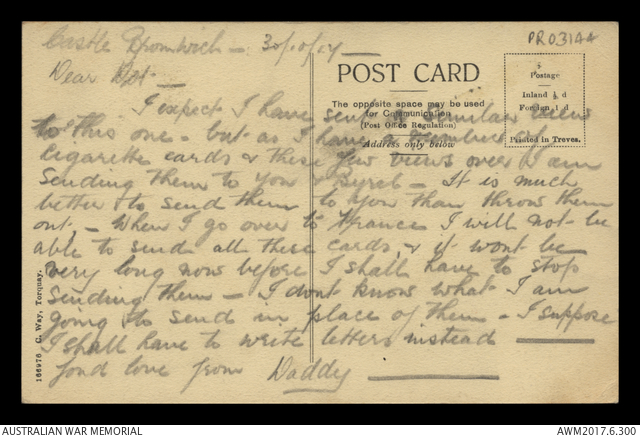 Castle Bromwich - 30/10/17
PR03144
Dear Dot -
POST CARD
Postage
Inland ½ d
Foreign 1 d
Printed in Treves.
The opposite space may be used
for Communication
(Post Office Regulation)
Address only below
I expect I have sent a similar view
to this one - but as I have a number of
cigarette cards & these few views over I am
sending them to you & - It is much
better to send them to you than throw them
out, - When I go over to France I will not be
able to send all these cards, & it wont be
very long now before I shall have to stop
sending them - I dont know what I am
going to send in place of them - I suppose
I shall have to write letters instead
fond love from Daddy
166976 C. Way, Torquay.
AUSTRALIAN WAR MEMORIAL
AWM2017.6.300